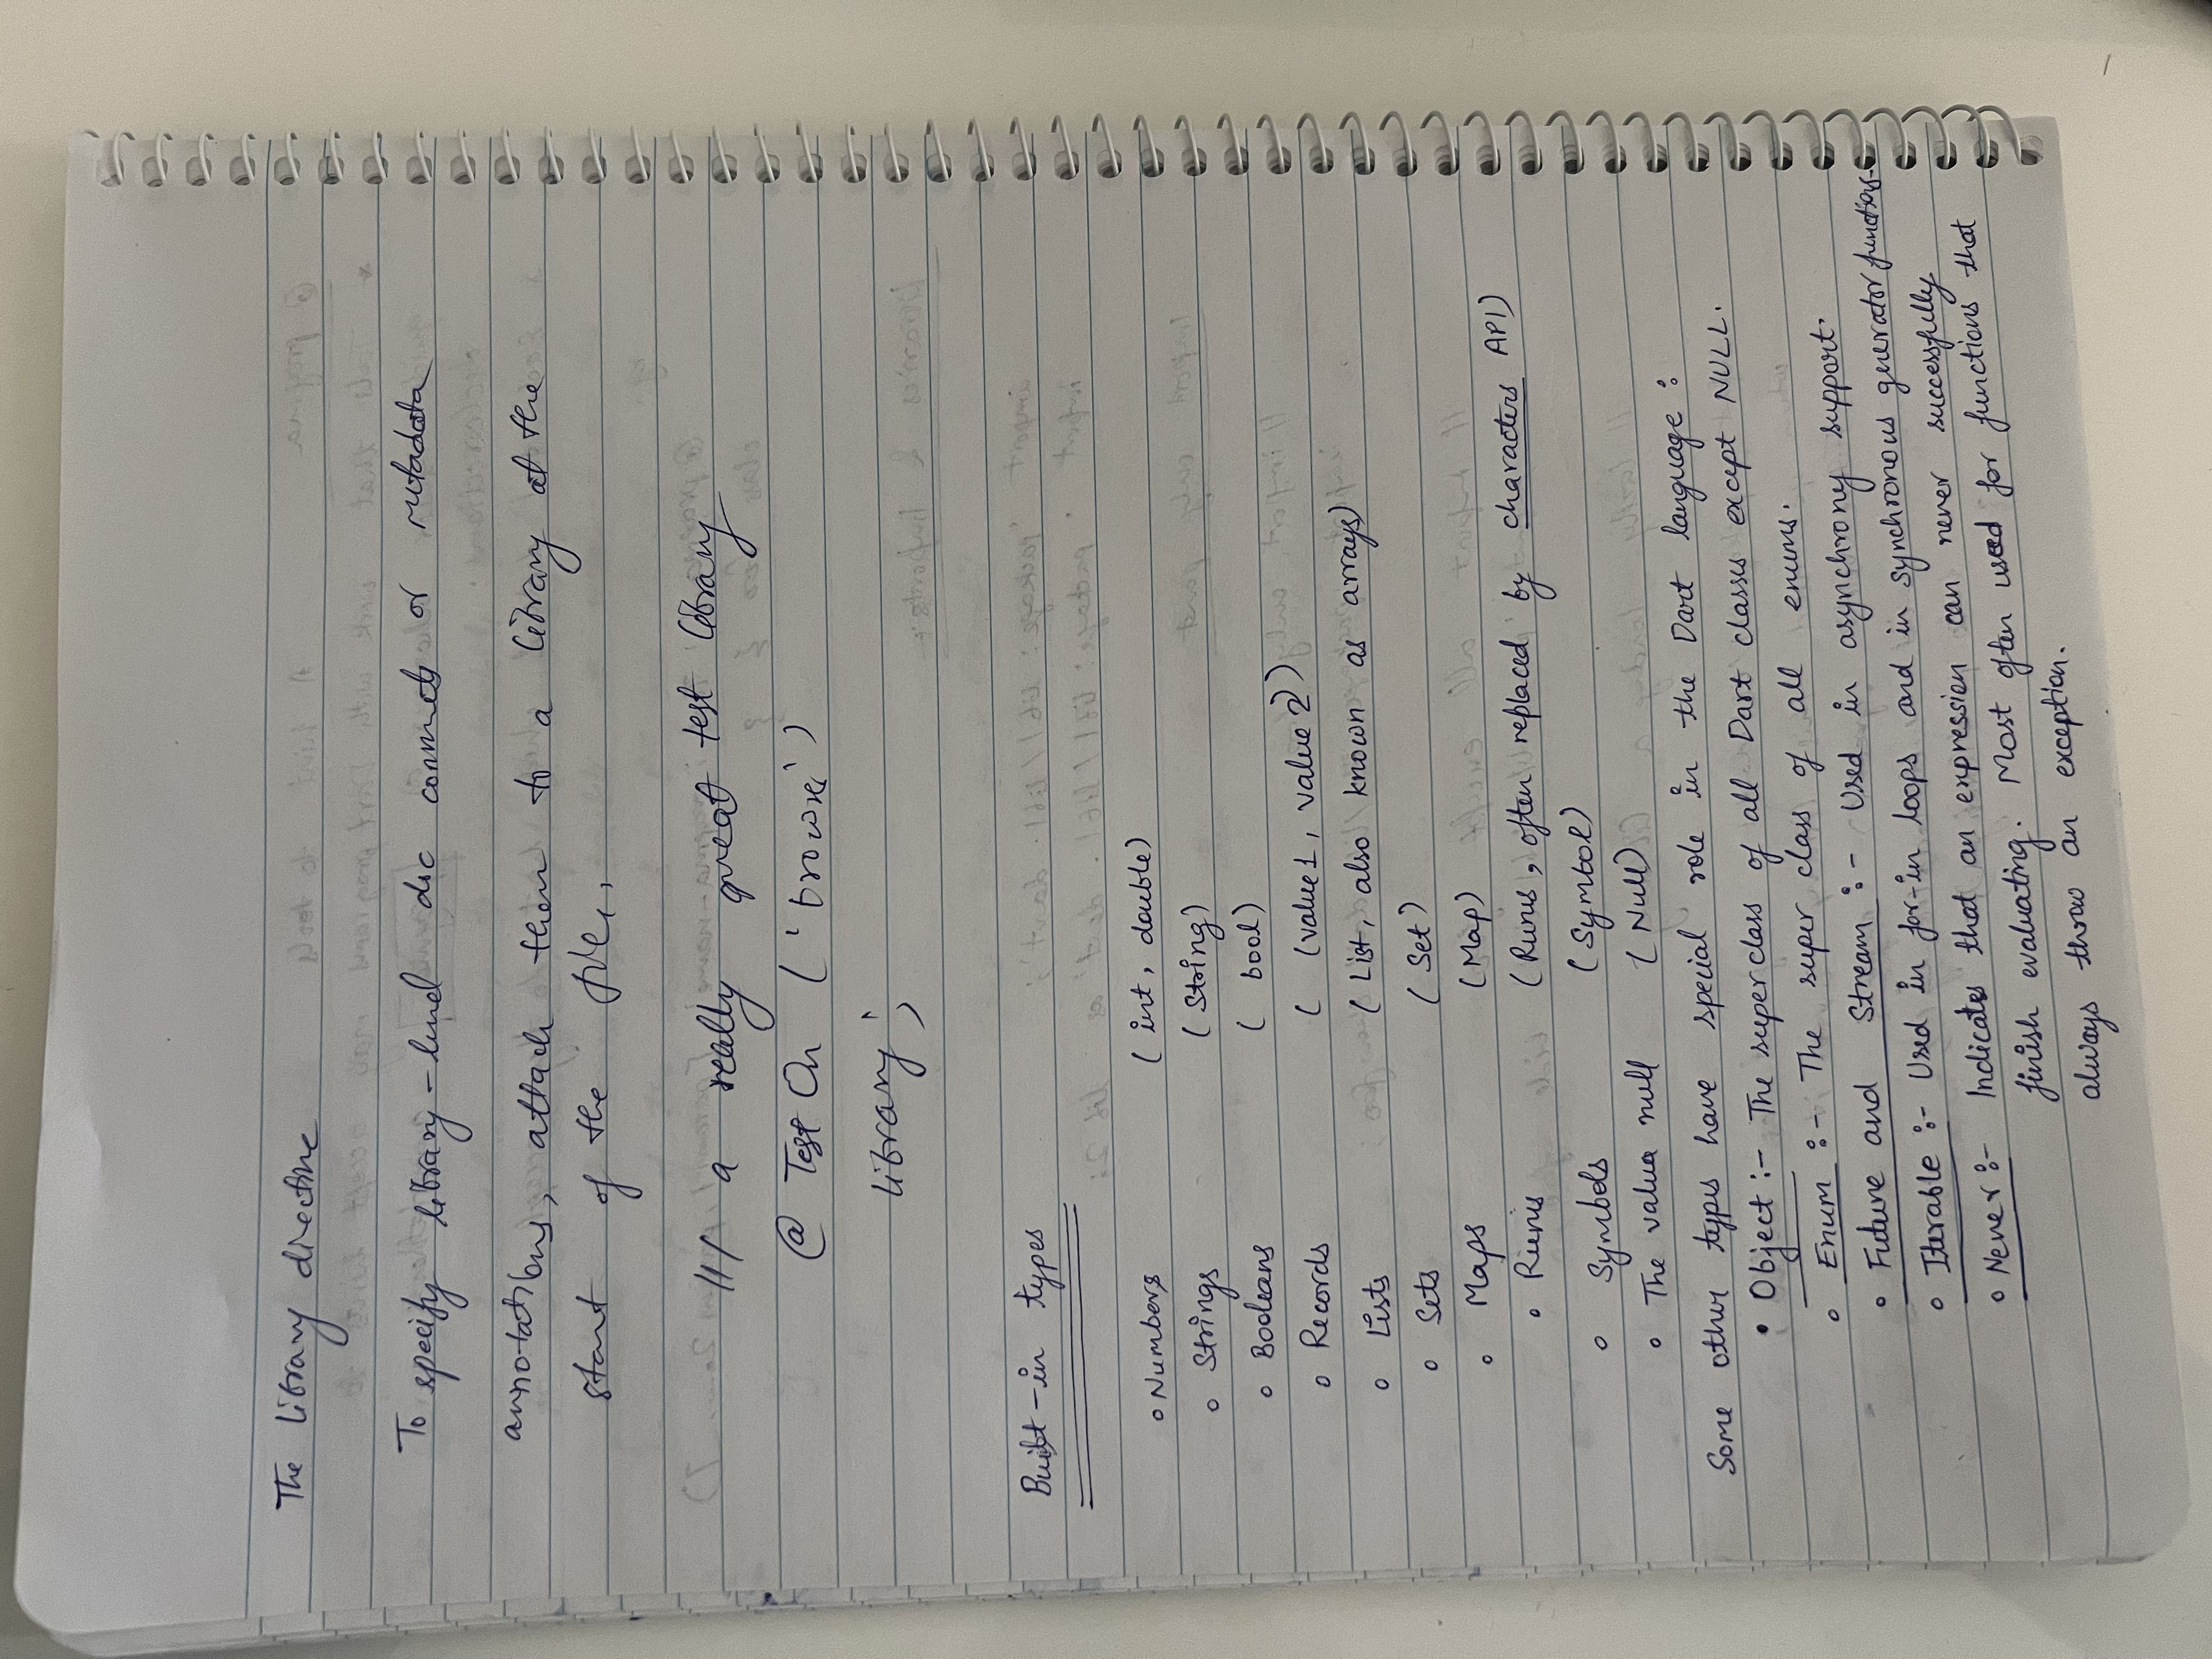 The library directive
To specify library-level doc comments or metadata
annotations, attach them to a library at the
start of the file.
/// a really great test library
@ Test On ('browser')
library;
Built-in types
Numbers (int, double)
Strings (String)
Booleans (bool)
Records ( (value1, value2))
Lists (List, also known as arrays)
Sets (Set)
Maps (Map)
Runes (Runes, often replaced by characters API)
Symbols (Symbol)
The value null (Null)
Some other types have special role in the Dart language:
• Object :- The superclass of all Dart classes except NULL.
Enum :- The super class of all enums.
Future and Stream :- Used in asynchrony support.
Iterable :- Used in for-in loops and in synchronous generator functions.
Never :- Indicates that an expression can never successfully
finish evaluating. Most often used for functions that
always throw an exception.